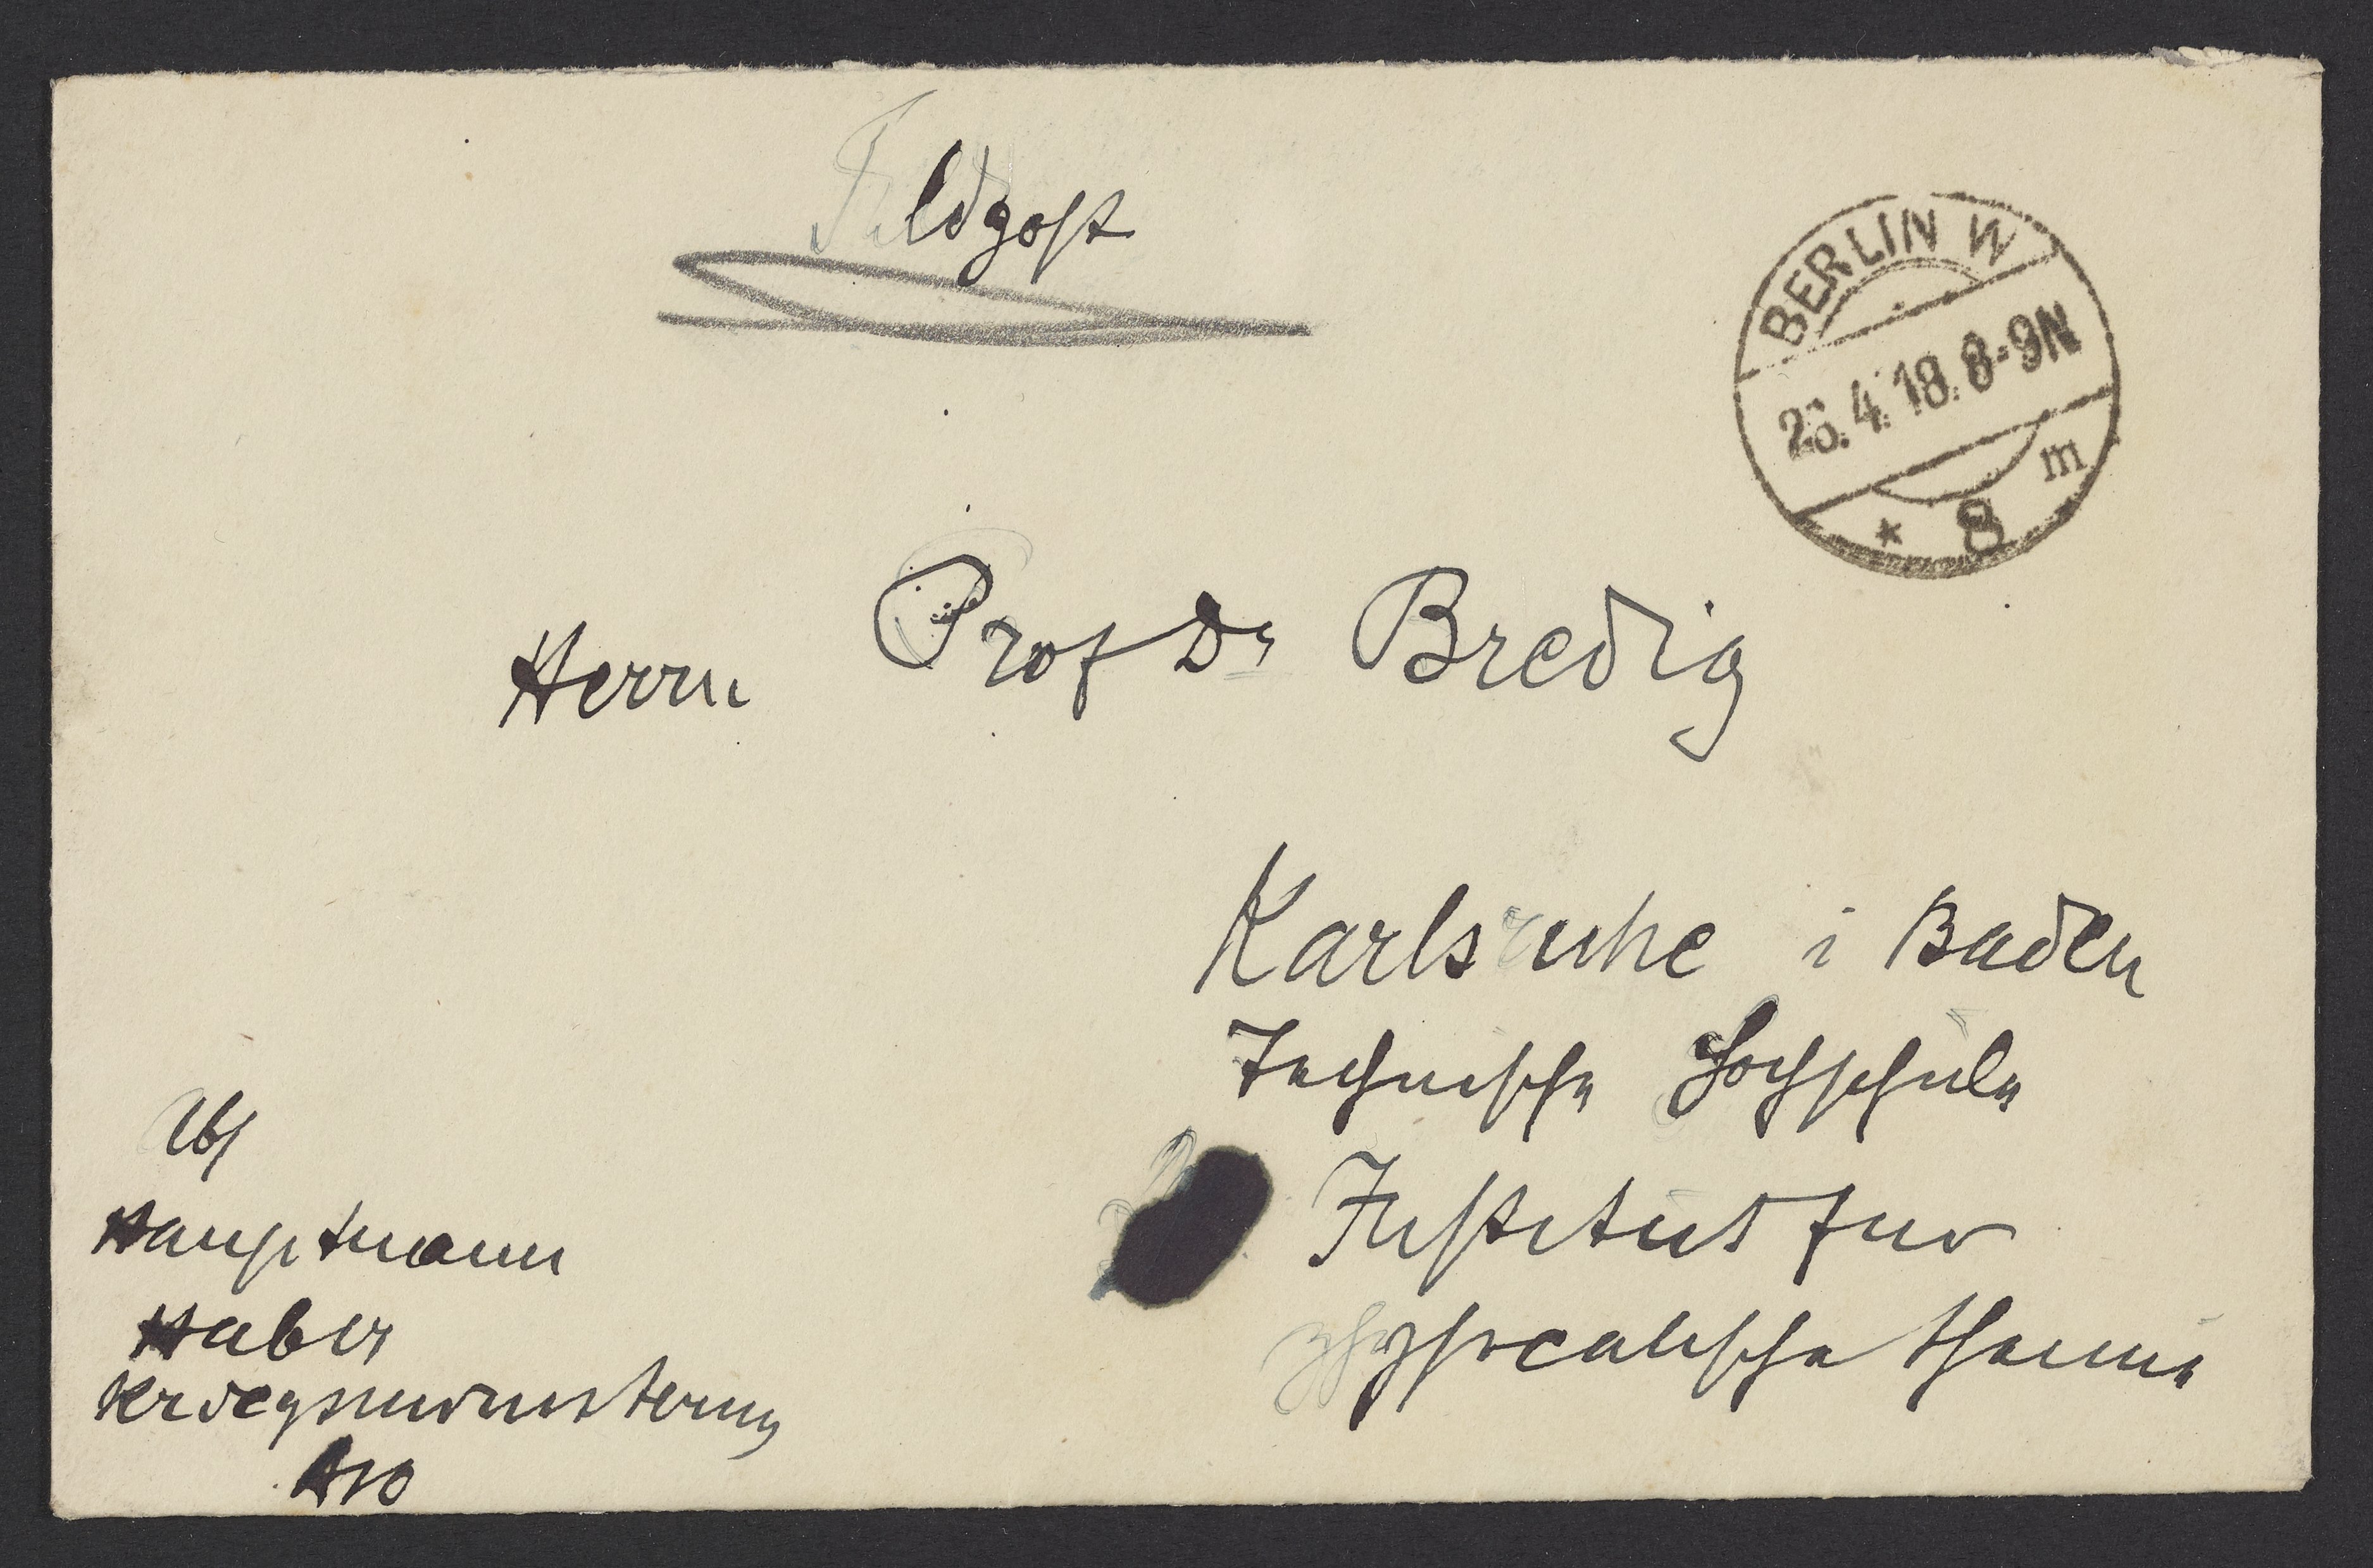 Feldpost
BERLIN W
4.18.8-9N
m
* 8
Herrn Prof Dr Bredig
Karlsruhe i Baden
Technische Hochschule
Institut für
physicalische Chemie
Abs
Hauptmann
Haber
Kriegsministerium
A10